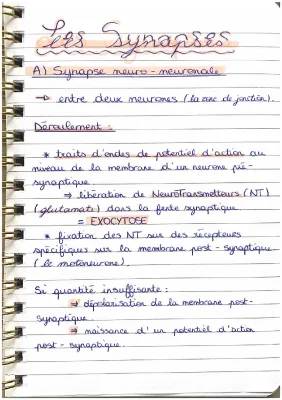 Les Synapses
A) Synapse neuro-neuronale
→ entre deux neurones (la zone de jonction).
Déroulement :
* traits d'ondes de potentiel d'action au
niveau de la membrane d'un neurone pré-
synaptique
⇒ libération de NeuroTransmetteurs (NT)
(glutamate) dans la fente synaptique
= EXOCYTOSE
* fixation des NT sur des récepteurs
spécifiques sur la membrane post-synaptique
(le motoneurone).
Si quantité insuffisante :
⇒ dépolarisation de la membrane post-
synaptique
⇒ naissance d'un potentiel d'action
post-synaptique.